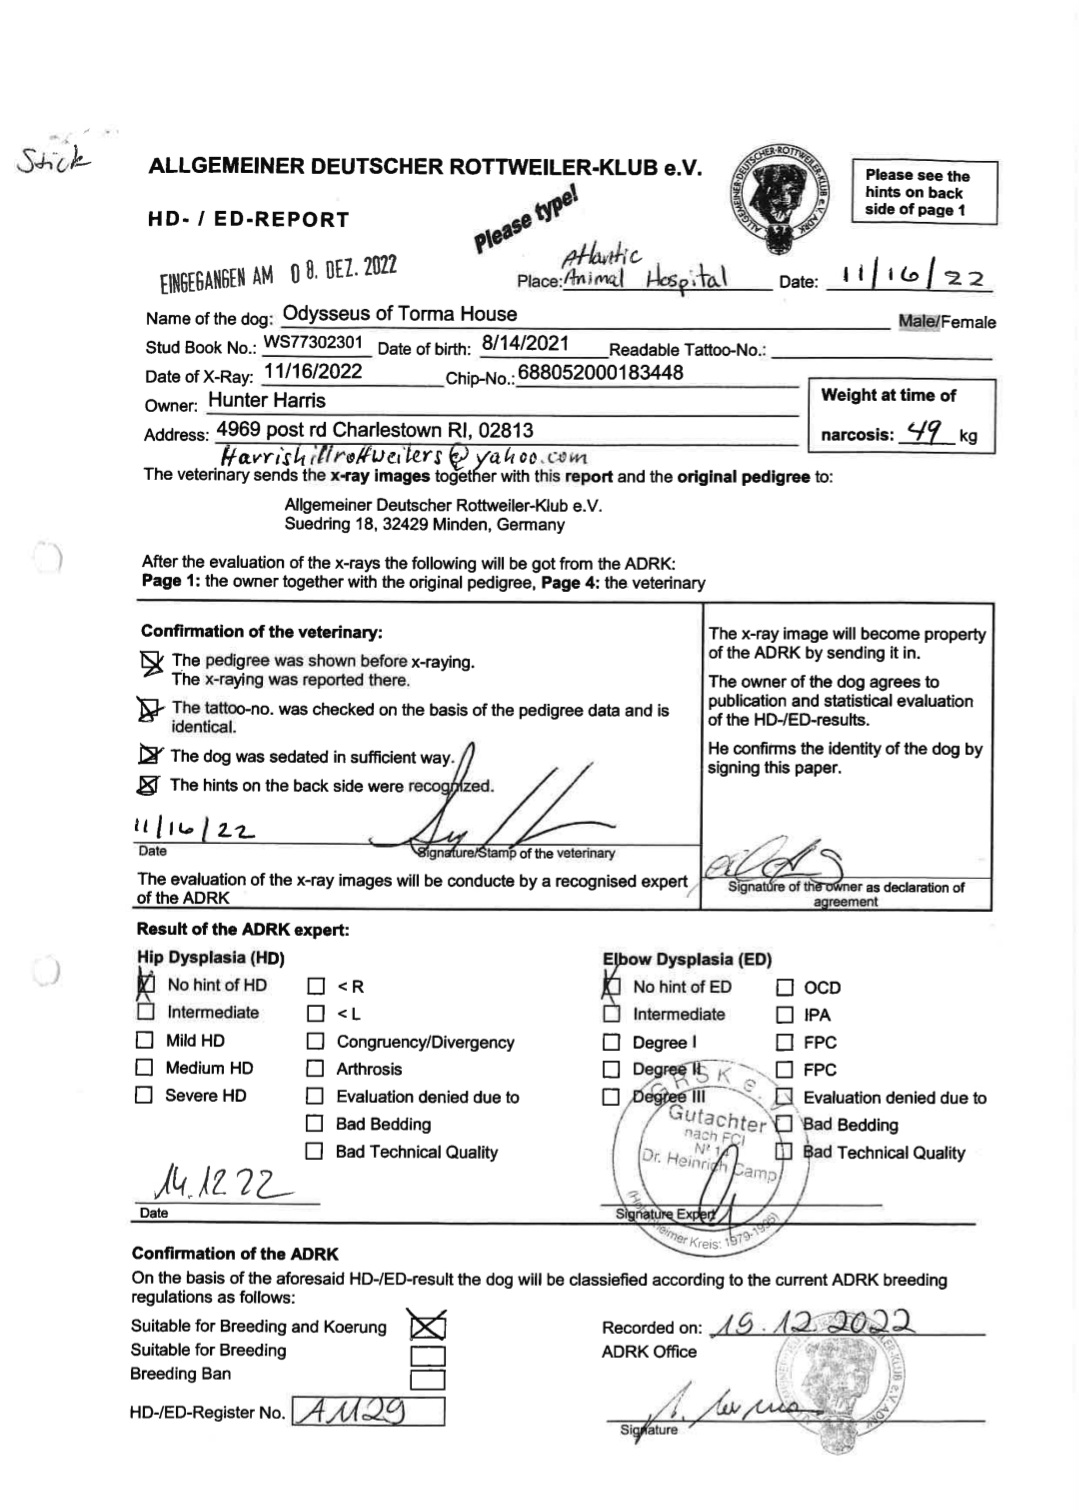 Stick
ALLGEMEINER DEUTSCHER ROTTWEILER-KLUB e.V.
ALLGEMEINER-DEUTSCHER-ROTTWEILER-KLUB e.V. ADRK
Please see the
hints on back
side of page 1
HD- / ED-REPORT
Please type!
EINGEGANGEN AM 08. DEZ. 2022
Atlantic
Place: Animal Hospital Date: 11/16/22
Name of the dog: Odysseus of Torma House Male/Female
Stud Book No.: WS77302301 Date of birth: 8/14/2021 Readable Tattoo-No.:
Date of X-Ray: 11/16/2022 Chip-No.: 688052000183448
Owner: Hunter Harris
Weight at time of
narcosis: 49 kg
Address: 4969 post rd Charlestown RI, 02813
Harrishillrottweilers@yahoo.com
The veterinary sends the x-ray images together with this report and the original pedigree to:
Allgemeiner Deutscher Rottweiler-Klub e.V.
Suedring 18, 32429 Minden, Germany
After the evaluation of the x-rays the following will be got from the ADRK:
Page 1: the owner together with the original pedigree, Page 4: the veterinary
Confirmation of the veterinary:
The pedigree was shown before x-raying.
The x-raying was reported there.
The tattoo-no. was checked on the basis of the pedigree data and is
identical.
The dog was sedated in sufficient way.
The hints on the back side were recognized.
11/16/22
Date Signature/Stamp of the veterinary
The evaluation of the x-ray images will be conducte by a recognised expert
of the ADRK
The x-ray image will become property
of the ADRK by sending it in.
The owner of the dog agrees to
publication and statistical evaluation
of the HD-/ED-results.
He confirms the identity of the dog by
signing this paper.
Signature of the owner as declaration of
agreement
Result of the ADRK expert:
Hip Dysplasia (HD)
No hint of HD < R
Intermediate < L
Mild HD Congruency/Divergency
Medium HD Arthrosis
Severe HD Evaluation denied due to
Bad Bedding
Bad Technical Quality
14.12.22
Date
Elbow Dysplasia (ED)
No hint of ED OCD
Intermediate IPA
Degree I FPC
Degree II FPC
Degree III Evaluation denied due to
Bad Bedding
Bad Technical Quality
GRSK e.V.
Gutachter
nach FCI
Dr. Heinrich Camp
Kreis: 1979-1995)
Signature Expert
Confirmation of the ADRK
On the basis of the aforesaid HD-/ED-result the dog will be classiefied according to the current ADRK breeding
regulations as follows:
Suitable for Breeding and Koerung
Suitable for Breeding
Breeding Ban
HD-/ED-Register No. A1129
Recorded on: 19.12.2022
ADRK Office
Signature